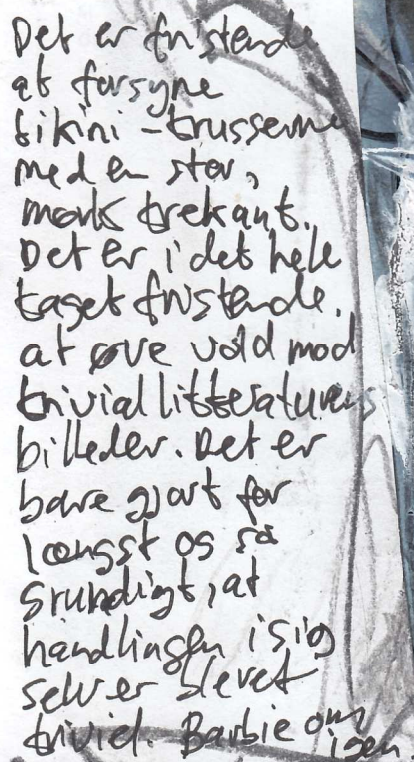 Det er fristende
at forsyne
bikini-trusserne
med en stor,
mørk trekant.
Det er i det hele
taget fristende.
at øve vold mod
triviallitteraturens
billeder. Det er
bare gjort for
længst og så
grundigt, at
handlingen i sig
selv er blevet
triviel. Barbie om
igen.